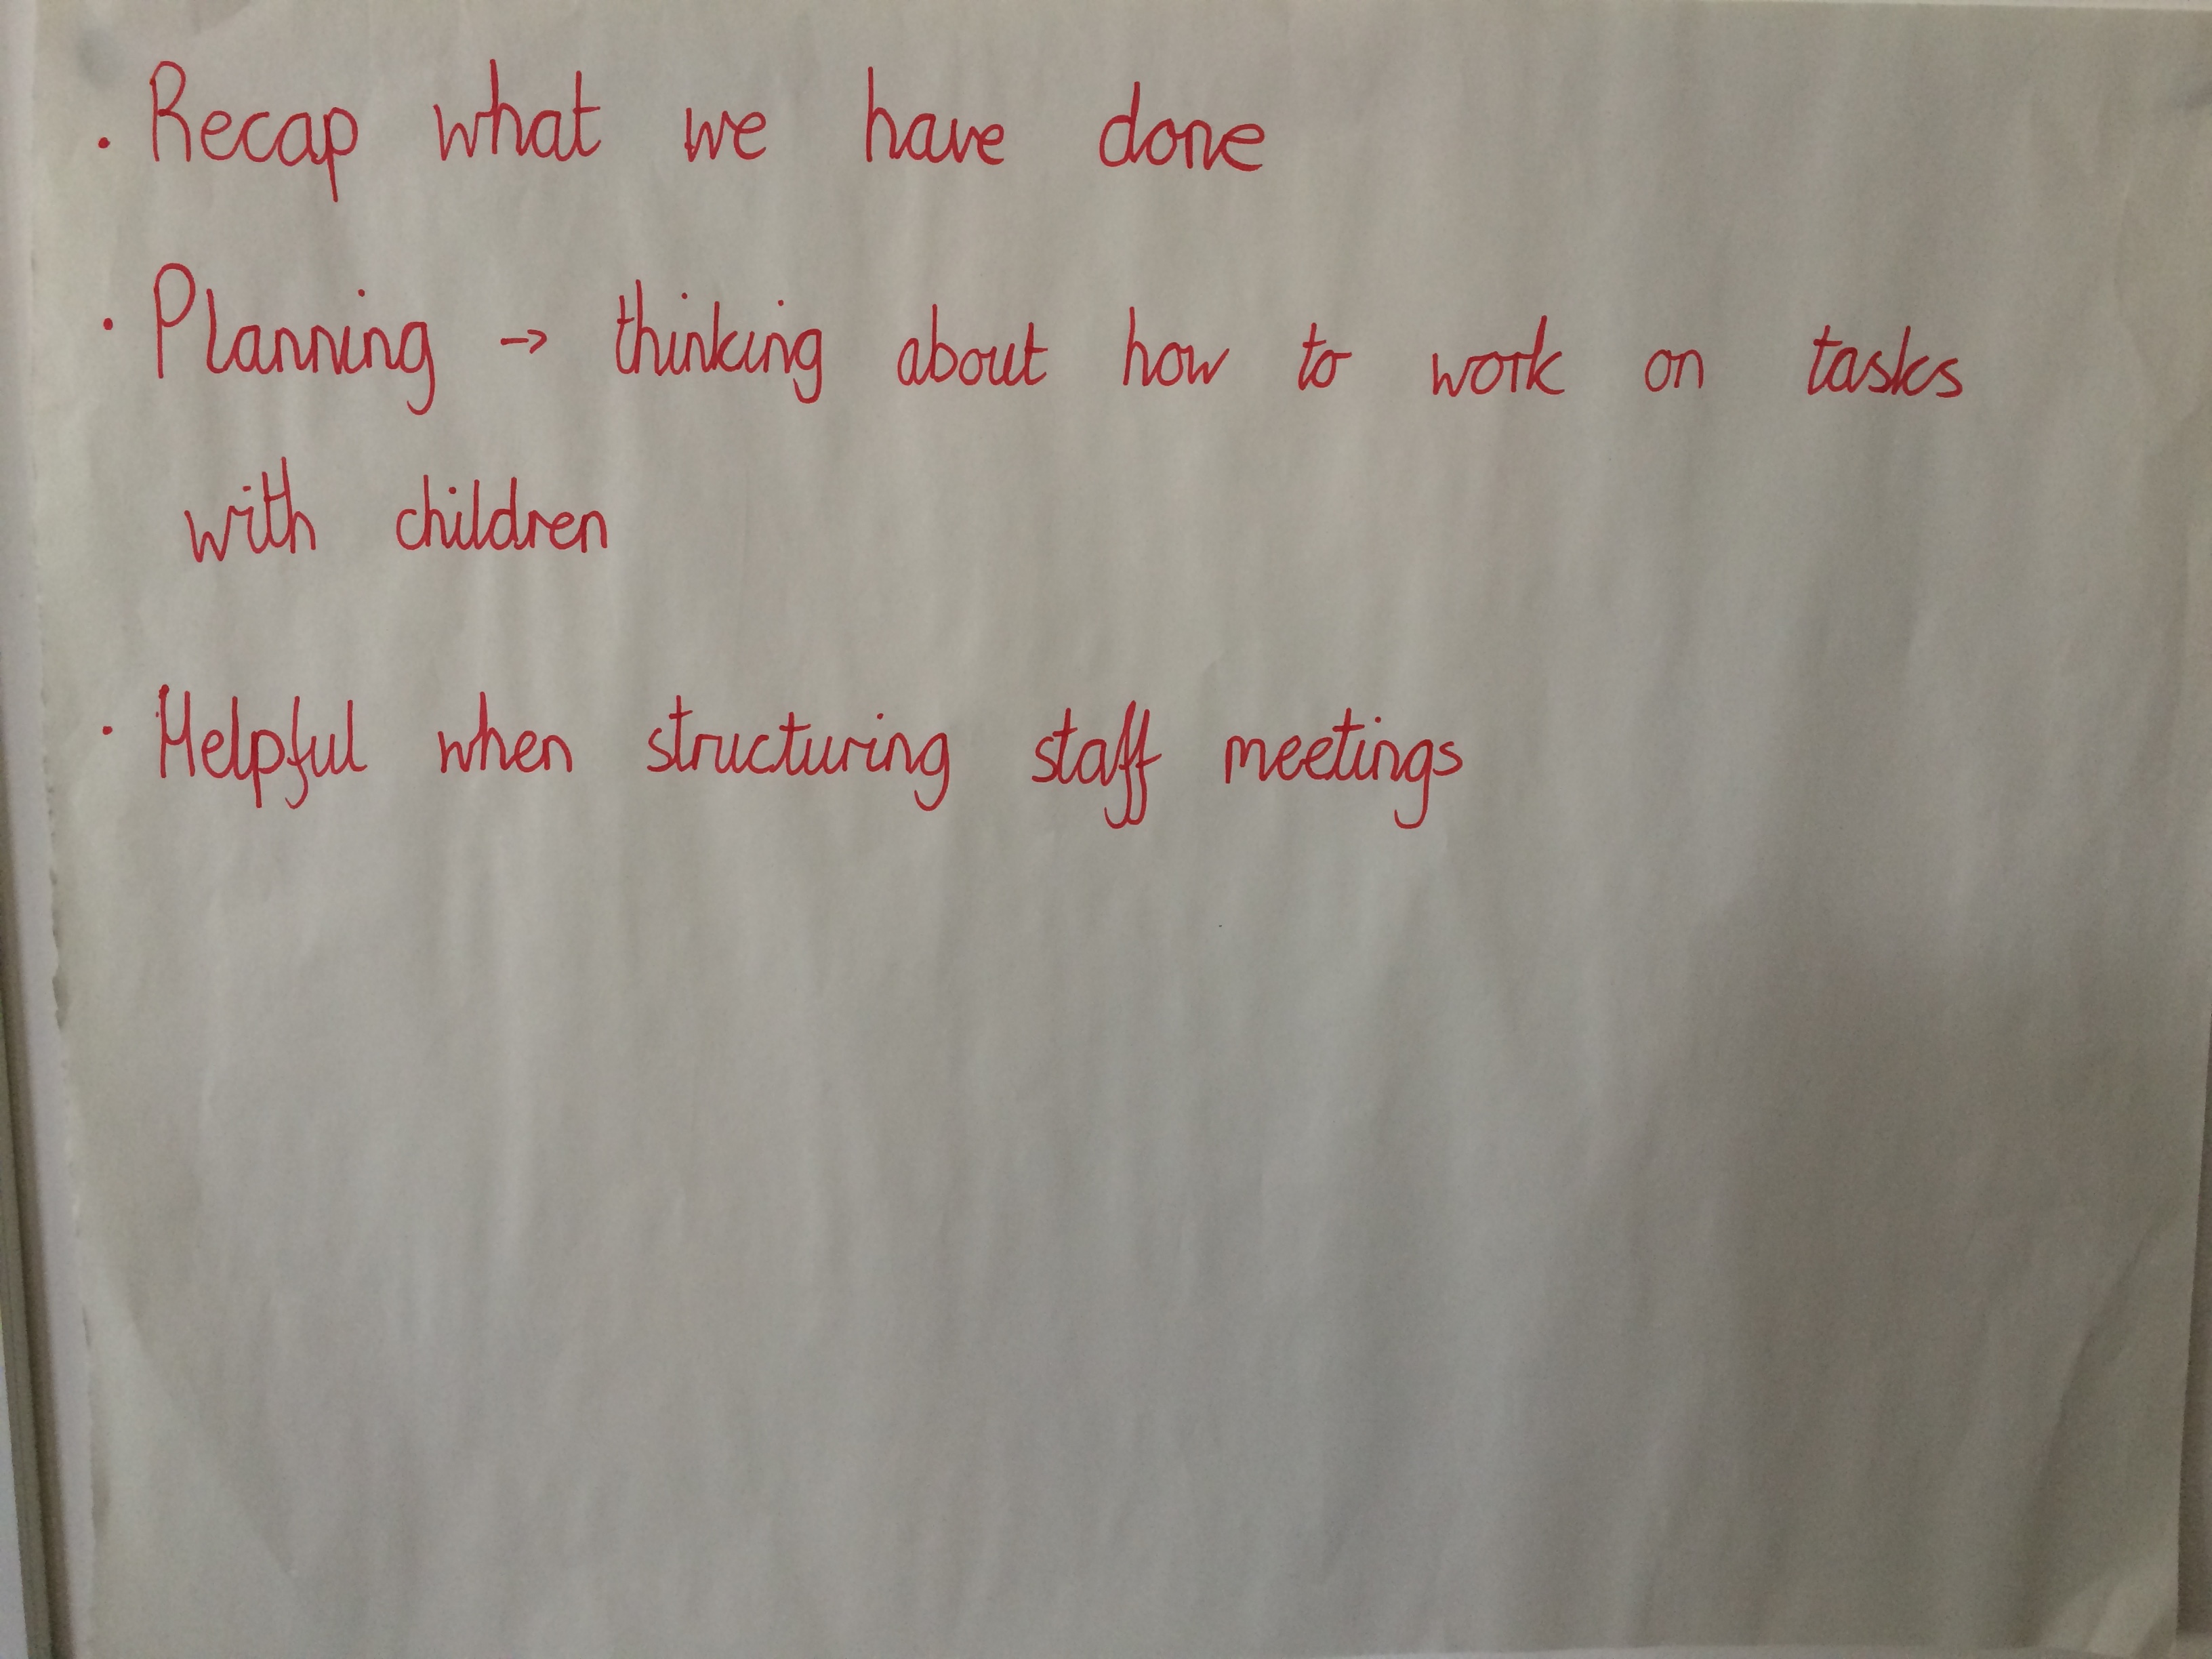 · Recap what we have done
· Planning → thinking about how to work on tasks
with children
· Helpful when structuring staff meetings